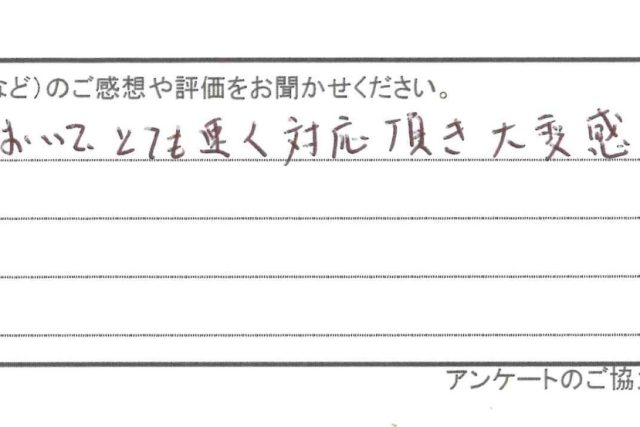 など）のご感想や評価をお聞かせください。
おいて、とても悪く対応頂き大変感
アンケートのご協